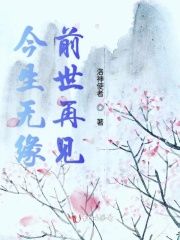 今生无缘
前世再见
洛神使者 ◎ 著